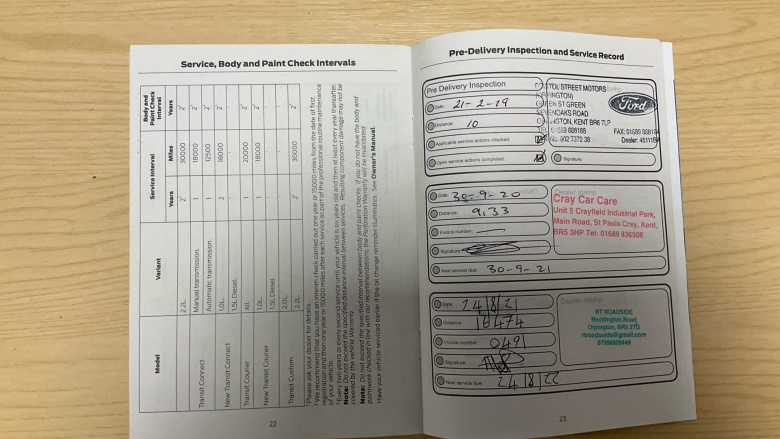 Service, Body and Paint Check Intervals
Model
Variant
Service Interval
Body and Paint Check Interval
Years
Miles
Years
2.2L
2
30000
2
Transit Connect
Manual transmission.
1
18000
2
Automatic transmission.
1
12500
2
New Transit Connect
1.0L
2
18000
2
1.5L Diesel
Transit Courier
All.
1
20000
2
New Transit Courier
1.0L
1
18000
2
1.5L Diesel
Transit Custom
2.0L
2.2L
2
30000
2
Please ask your dealer for details.
We recommend that you have an interim check carried out one year or 15000 miles from the date of first
registration and then one year or 15000 miles after each service as part of the professional routine maintenance
of your vehicle.
Every two years or every second service until your vehicle is six years old and then at least every year thereafter.
Note: Do not exceed the specified distance interval between services. Resulting component damage may not be
covered by the vehicle warranty.
Note: Do not exceed the specified interval between body and paint checks. If you do not have the body and
paintwork checked in line with our recommendations, the Perforation Warranty will be invalidated.
Have your vehicle serviced earlier if the oil change reminder illuminates. See Owner's Manual.
22
Pre-Delivery Inspection and Service Record
Pre Delivery Inspection
Date: 21-2-19
Distance: 10
Applicable service actions checked
Open service actions completed
STREET MOTORS
GREEN ST GREEN
SEVENOAKS ROAD
ORPINGTON, KENT BR6 7LP
TEL: 01689 888188
FAX: 01689
Ford
Signature
Date: 30-9-20
Distance: 9,133
Invoice number:
Signature:
Next service due: 30-9-21
Dealer stamp
Cray Car Care
Unit 5 Crayfield Industrial Park,
Main Road, St Pauls Cray, Kent,
BR5 3HP Tel: 01689 836506
Date: 24/8/21
Distance: 18474
Invoice number: 0491
Signature
Next service due: 24/8/22
Dealer stamp
RT ROADSIDE
Reddington Road
Orpington, BR5 2TG
rtroadside@gmail.com
07956809449
23